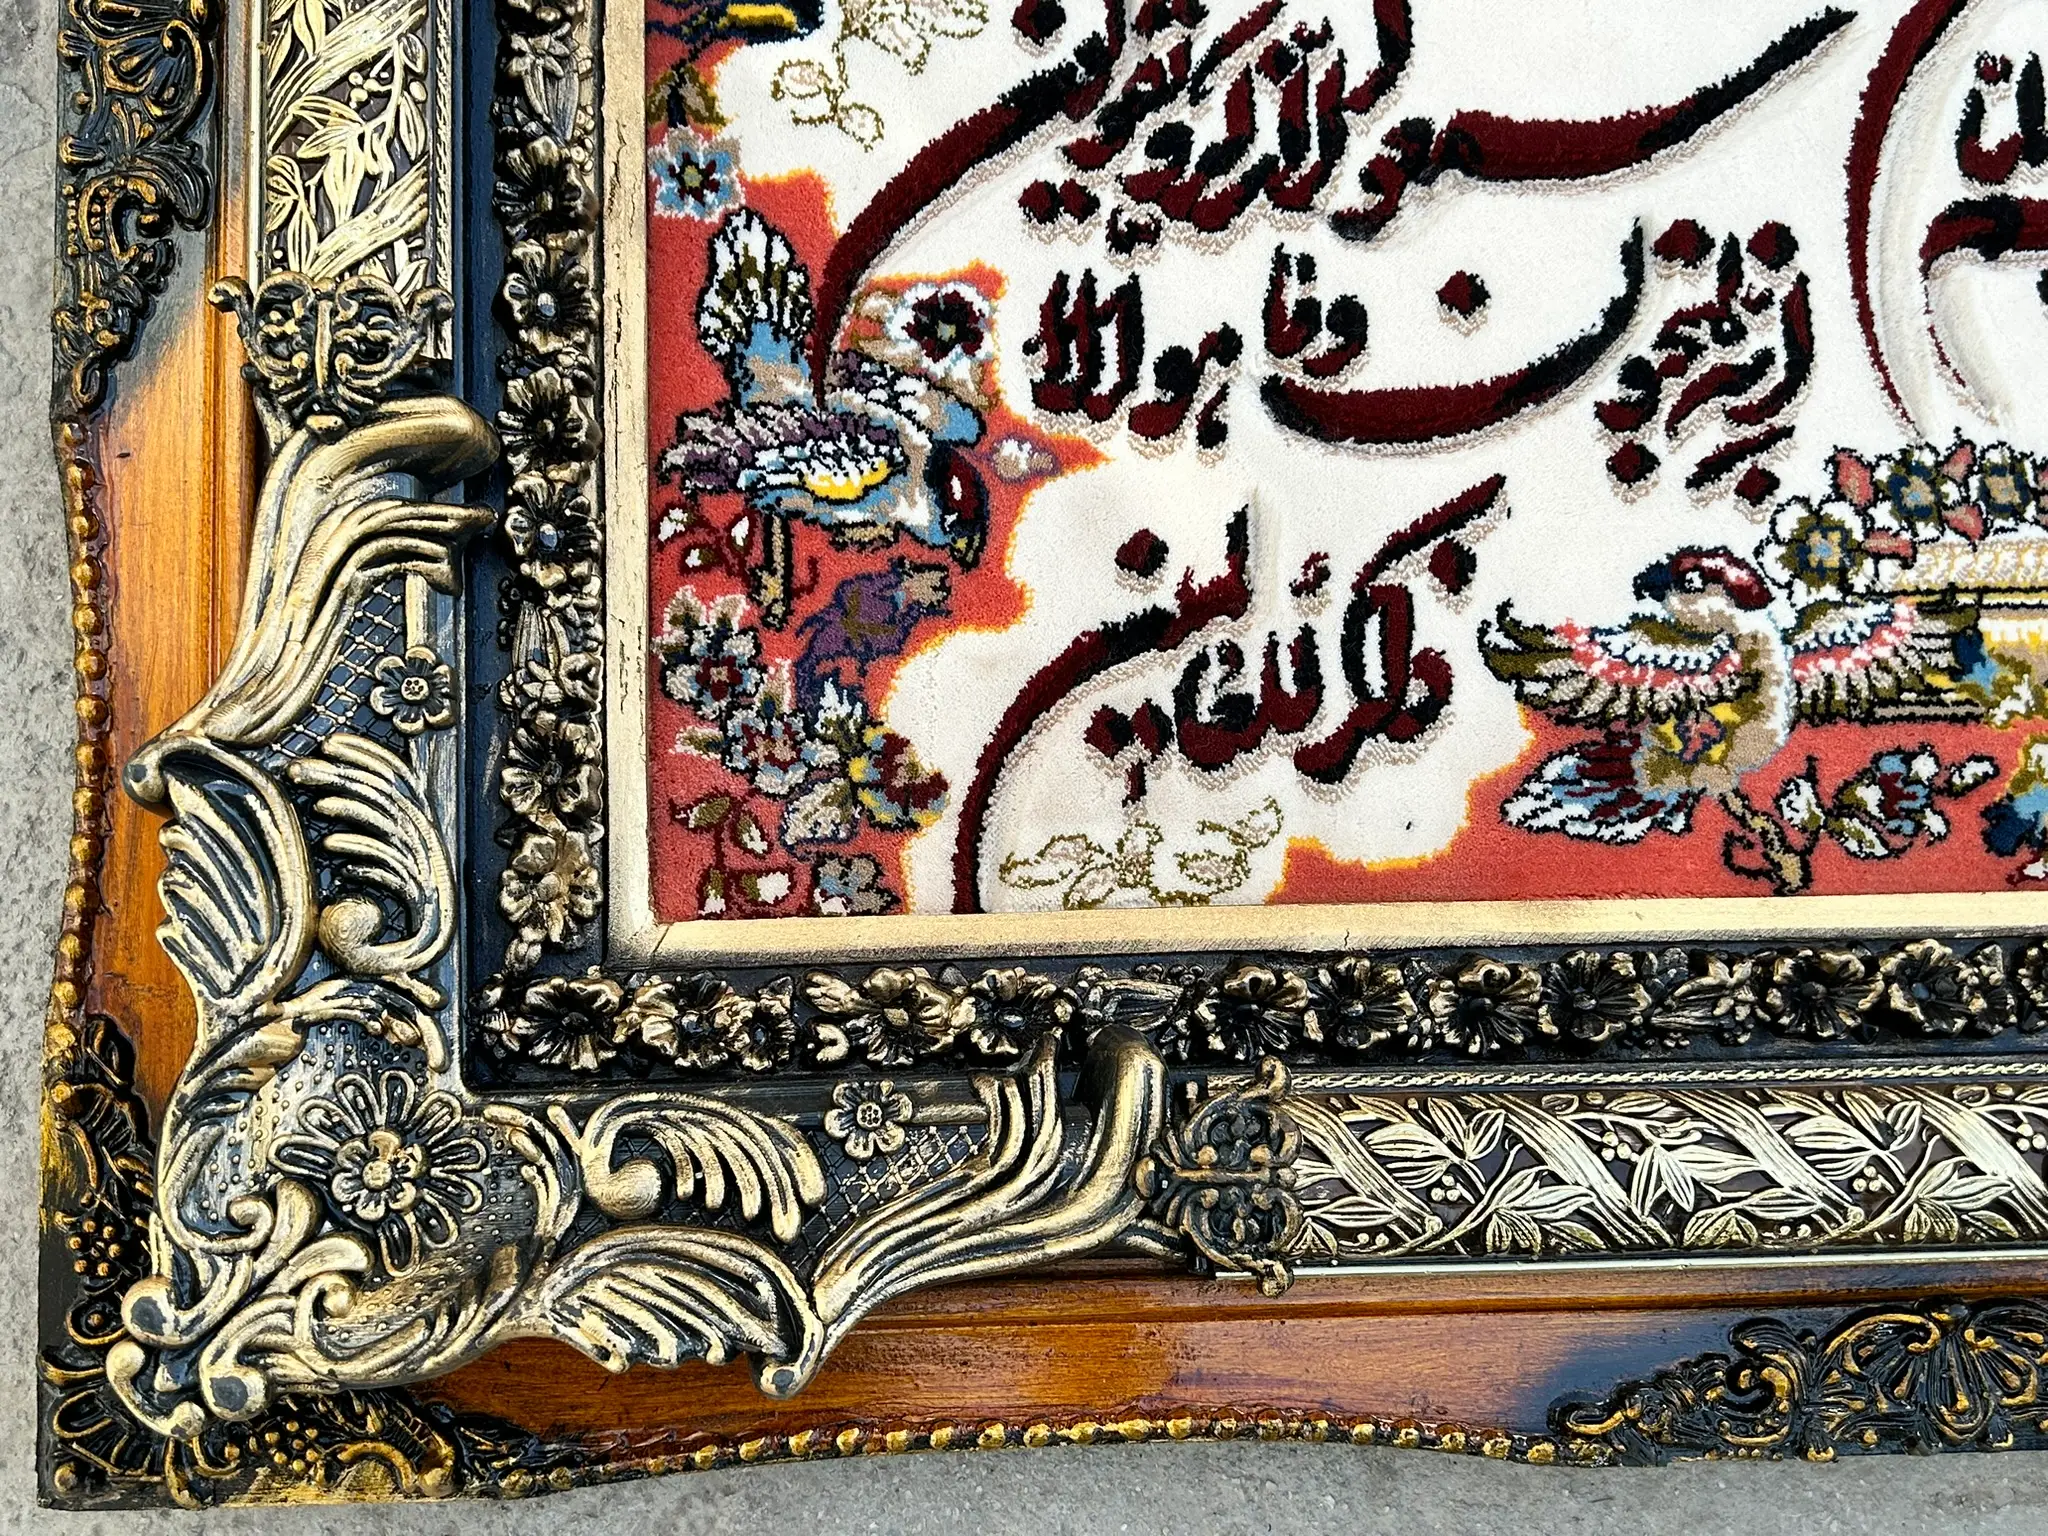 سمعوا الذكر و يقولون
انه لمجنون و ما هو الا
ذكر للعالمين